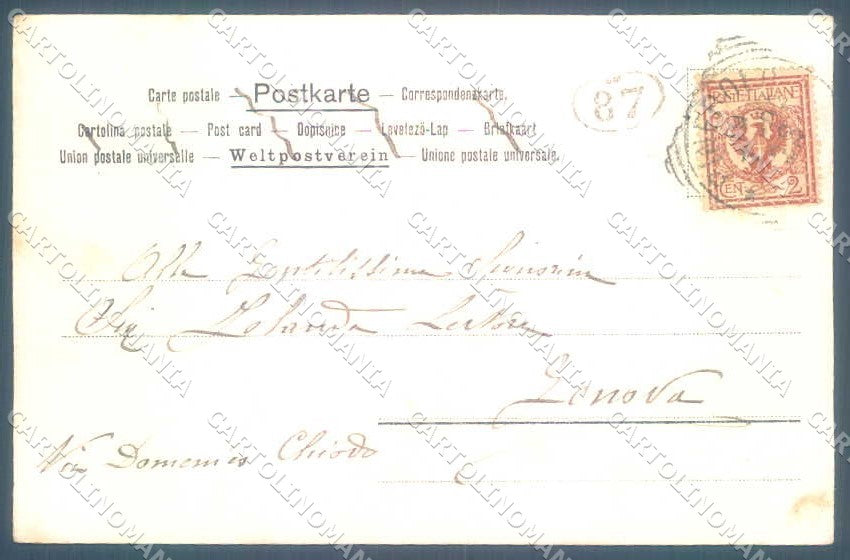 Carte postale — Postkarte — Correspondenzkarte.
Cartolina postale — Post card — Dopisnice — Levelező-Lap — Briefkaart
Union postale universelle — Weltpostverein — Unione postale universale.
87
POSTE ITALIANE
CEN. 2
Alla Gentilissima Signorina
Iolanda
Genova
Via Domenico Chiodo
CARTOLINOMANIA